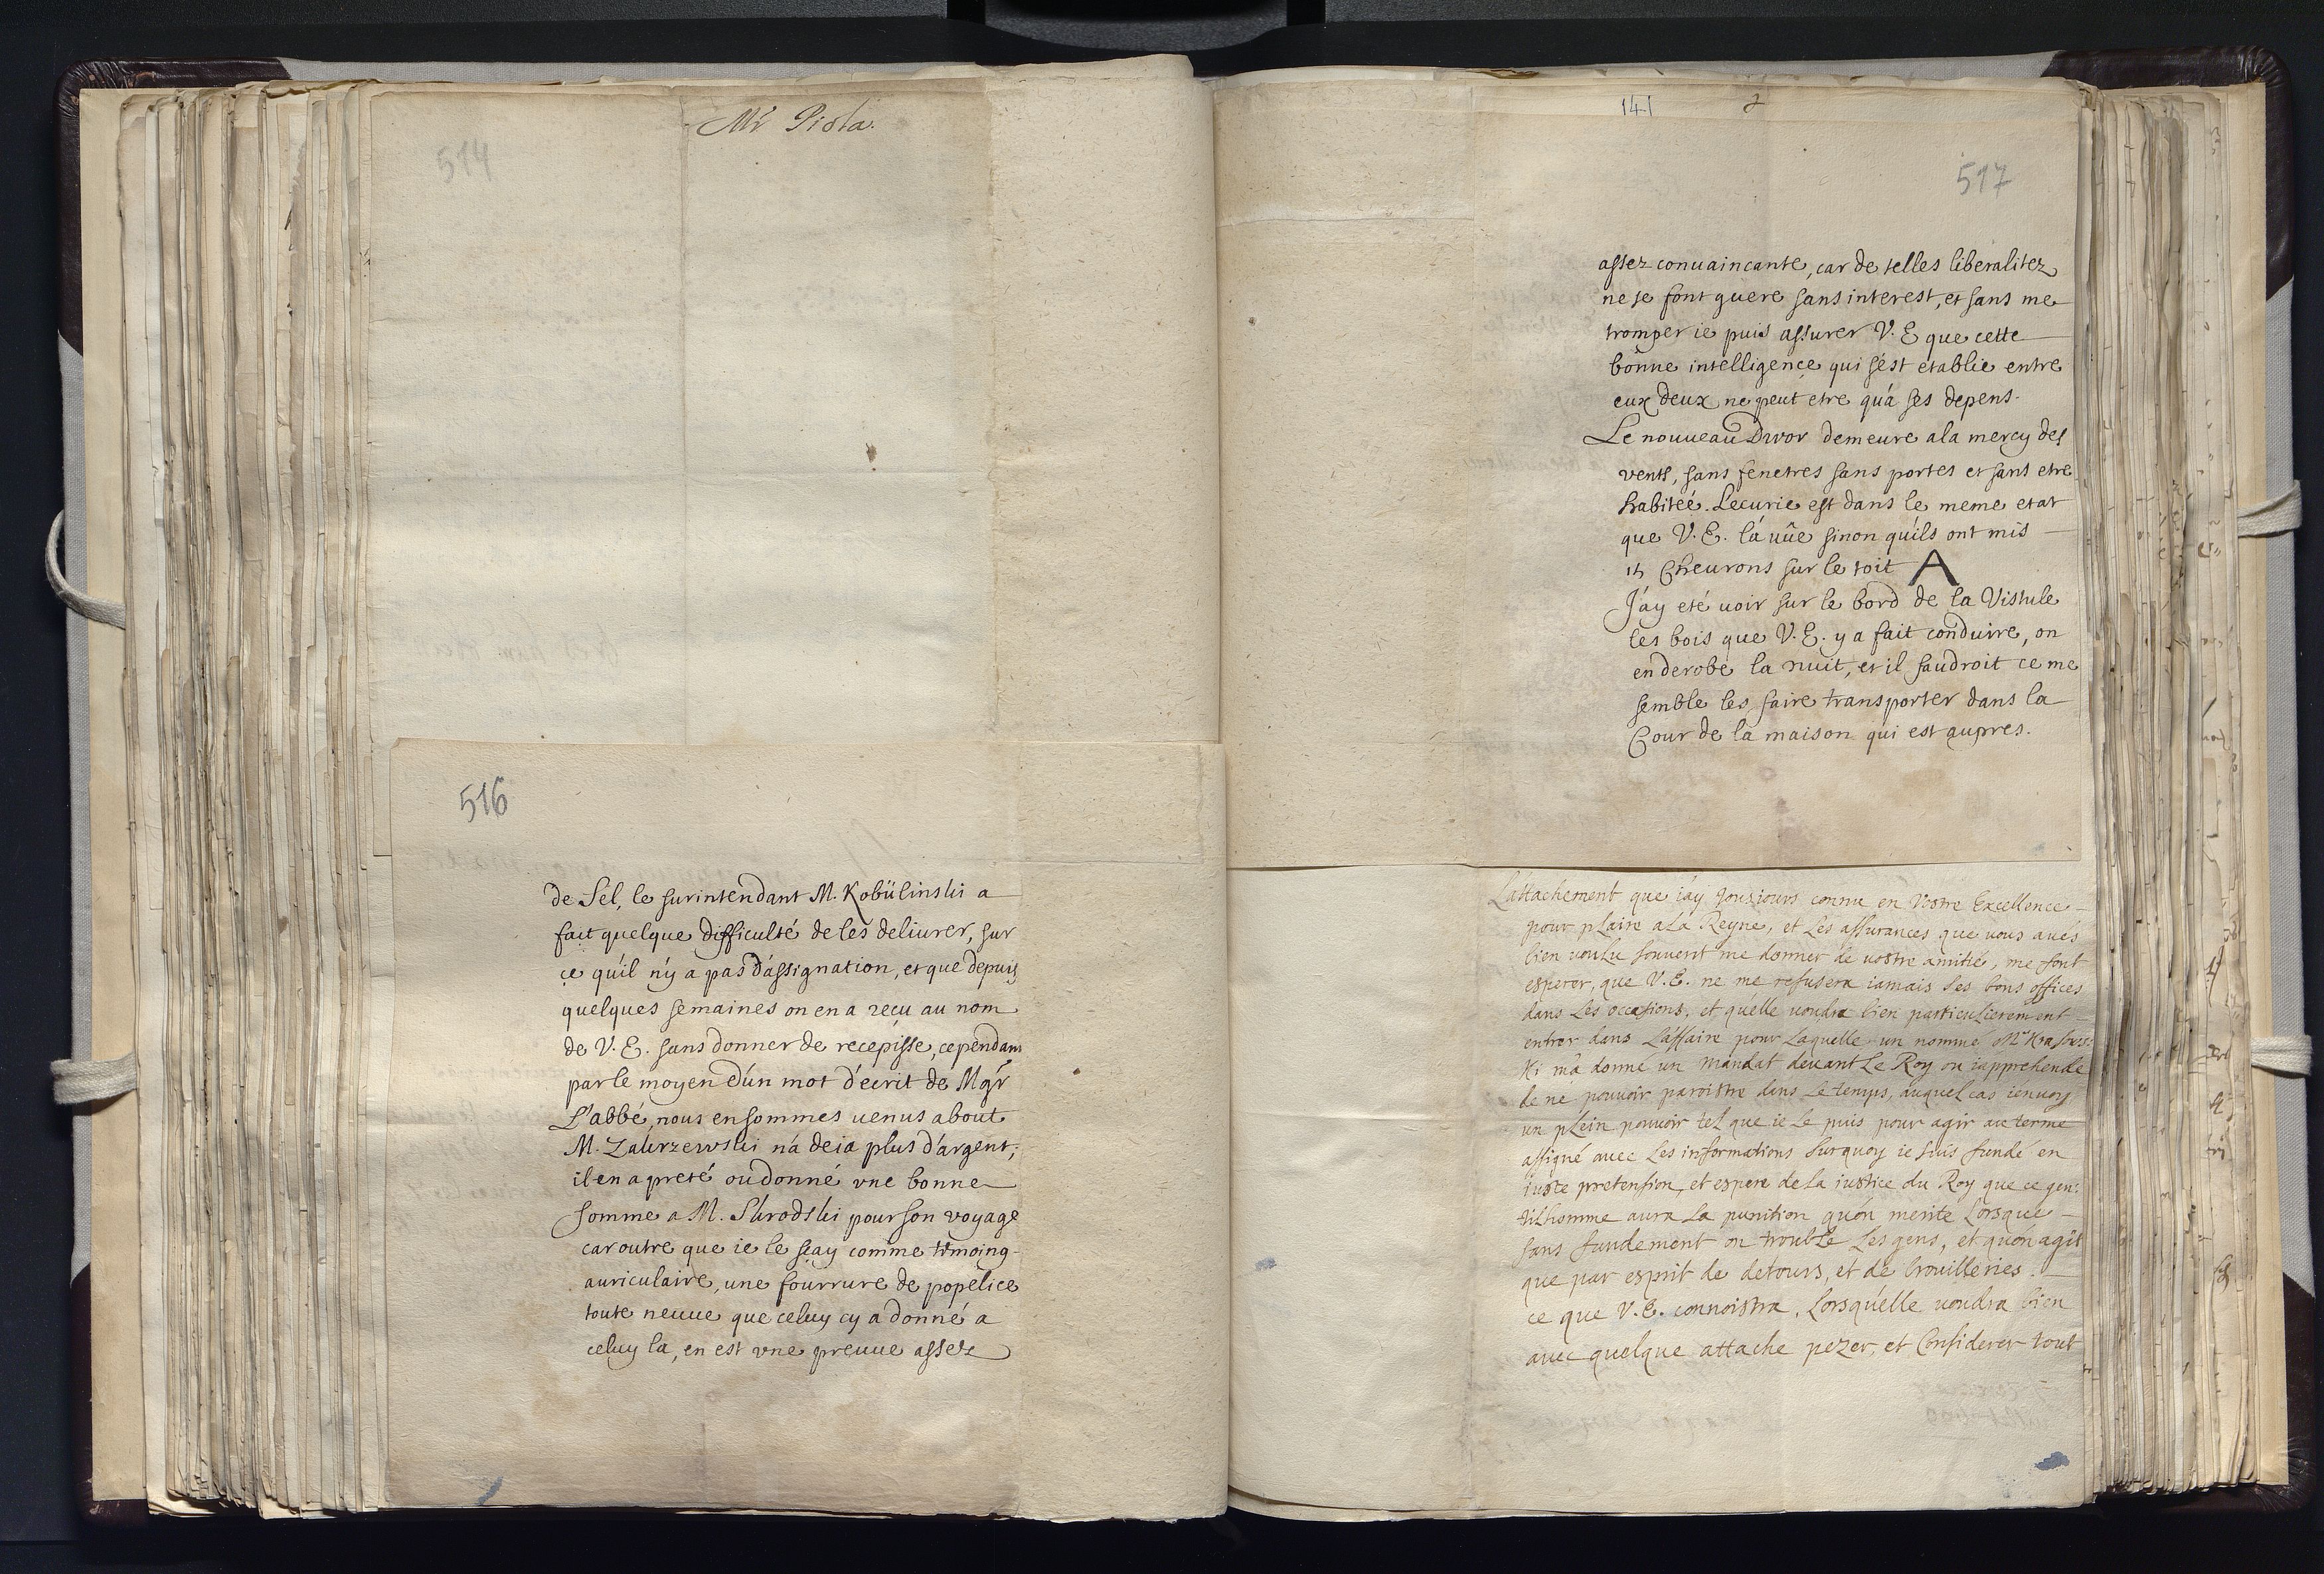 514
Mr Piola.
516
de Sel, le surintendant M. Kobÿlinski a
fait quelque difficulté de les deliurer, sur
ce qu'il n'y a pas d'assignation, et que depuis
quelques semaines on en a reçu au nom
de V. E. sans donner de recepisse, cependant
par le moyen d'un mot d'ecrit de Mgr
L'abbé, nous en sommes uenus about
M. Zakrzewski n'a deia plus d'argent;
il en a preté ou donné vne bonne
somme a M. Skrodski pour son voyage
car outre que ie le sçay comme témoing
auriculaire, une fourrure de popelice
toute neuue que celuy cy a donné a
celuy la, en est vne preuue assez
141 2
517
assez conuaincante, car de telles liberalitez
ne se font guere sans interest, et sans me
tromper ie puis assurer V. E que cette
bonne intelligence qui s'est etablie entre
eux deux ne peut etre qu'a ses depens.
Le nouueau Dwor demeure a la mercy des
vents, sans fenetres sans portes et sans etre
habiteé. Lecurie est dans le meme etat
que V. E. l'a uûe sinon qu'ils ont mis
15 Cheurons sur le toit A
J'ay eté uoir sur le bord de la Vistule
les bois que V. E. y a fait conduire, on
en derobe la nuit, et il faudroit ce me
semble les faire transporter dans la
Cour de la maison qui est aupres.
Lattachement que i'ay tousiours connu en Vostre Excellence
pour plaire a La Reyne, et Les assurances que vous aués
bien voulu souuent me donner de vostre amitié, me font
esperer, que V. E. ne me refusera iamais ses bons offices
dans Les occasions, et qu'elle voudra bien particulierement
entrer dans L'affaire pour Laquelle un nommé Mr
Ki m'a donné un mandat deuant Le Roy ou i'apprehende
de ne pouuoir paroistre dans Le temps, auquel cas i'enuoy
un plein pouuoir tel que ie Le puis pour agir au terme
assigné auec Les informations surquoy ie suis fundé en
iuste pretension, et espere de La iustice du Roy que ce gen:
tilhomme aura La punition qu'on merite Lorsque
sans fundement on trouble Les gens, et qu'on agit
que par esprit de detours, et de brouilleries.
ce que V. E. connoistra, Lorsqu'elle voudra bien
auec quelque attache pezer, et Considerer tout